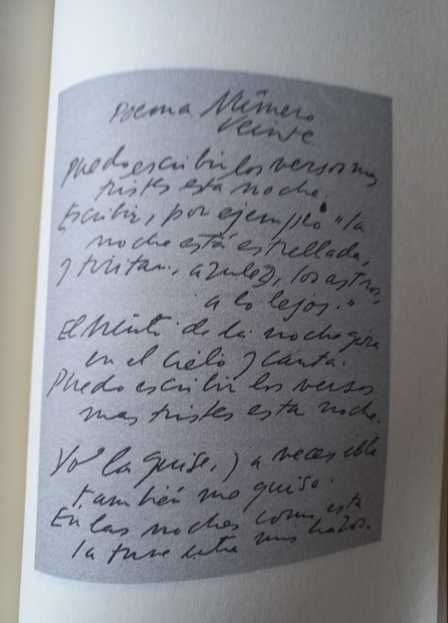 Poema Número
Veinte
Puedo escribir los versos mas
tristes esta noche.
Escribir, por ejemplo: "la
noche está estrellada,
y tiritan, azules, los astros,
a lo lejos."
El viento de la noche gira
en el cielo y canta.
Puedo escribir los versos
mas tristes esta noche.
Yo la quise, y a veces ella
también me quiso.
En las noches como esta
la tuve entre mis brazos.